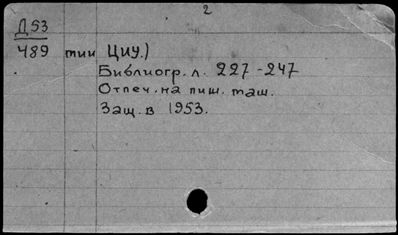 2
Д53
489 тии ЦИУ.)
Библиогр. л. 227-247
Отпеч. на пиш. маш.
Защ. в 1953.